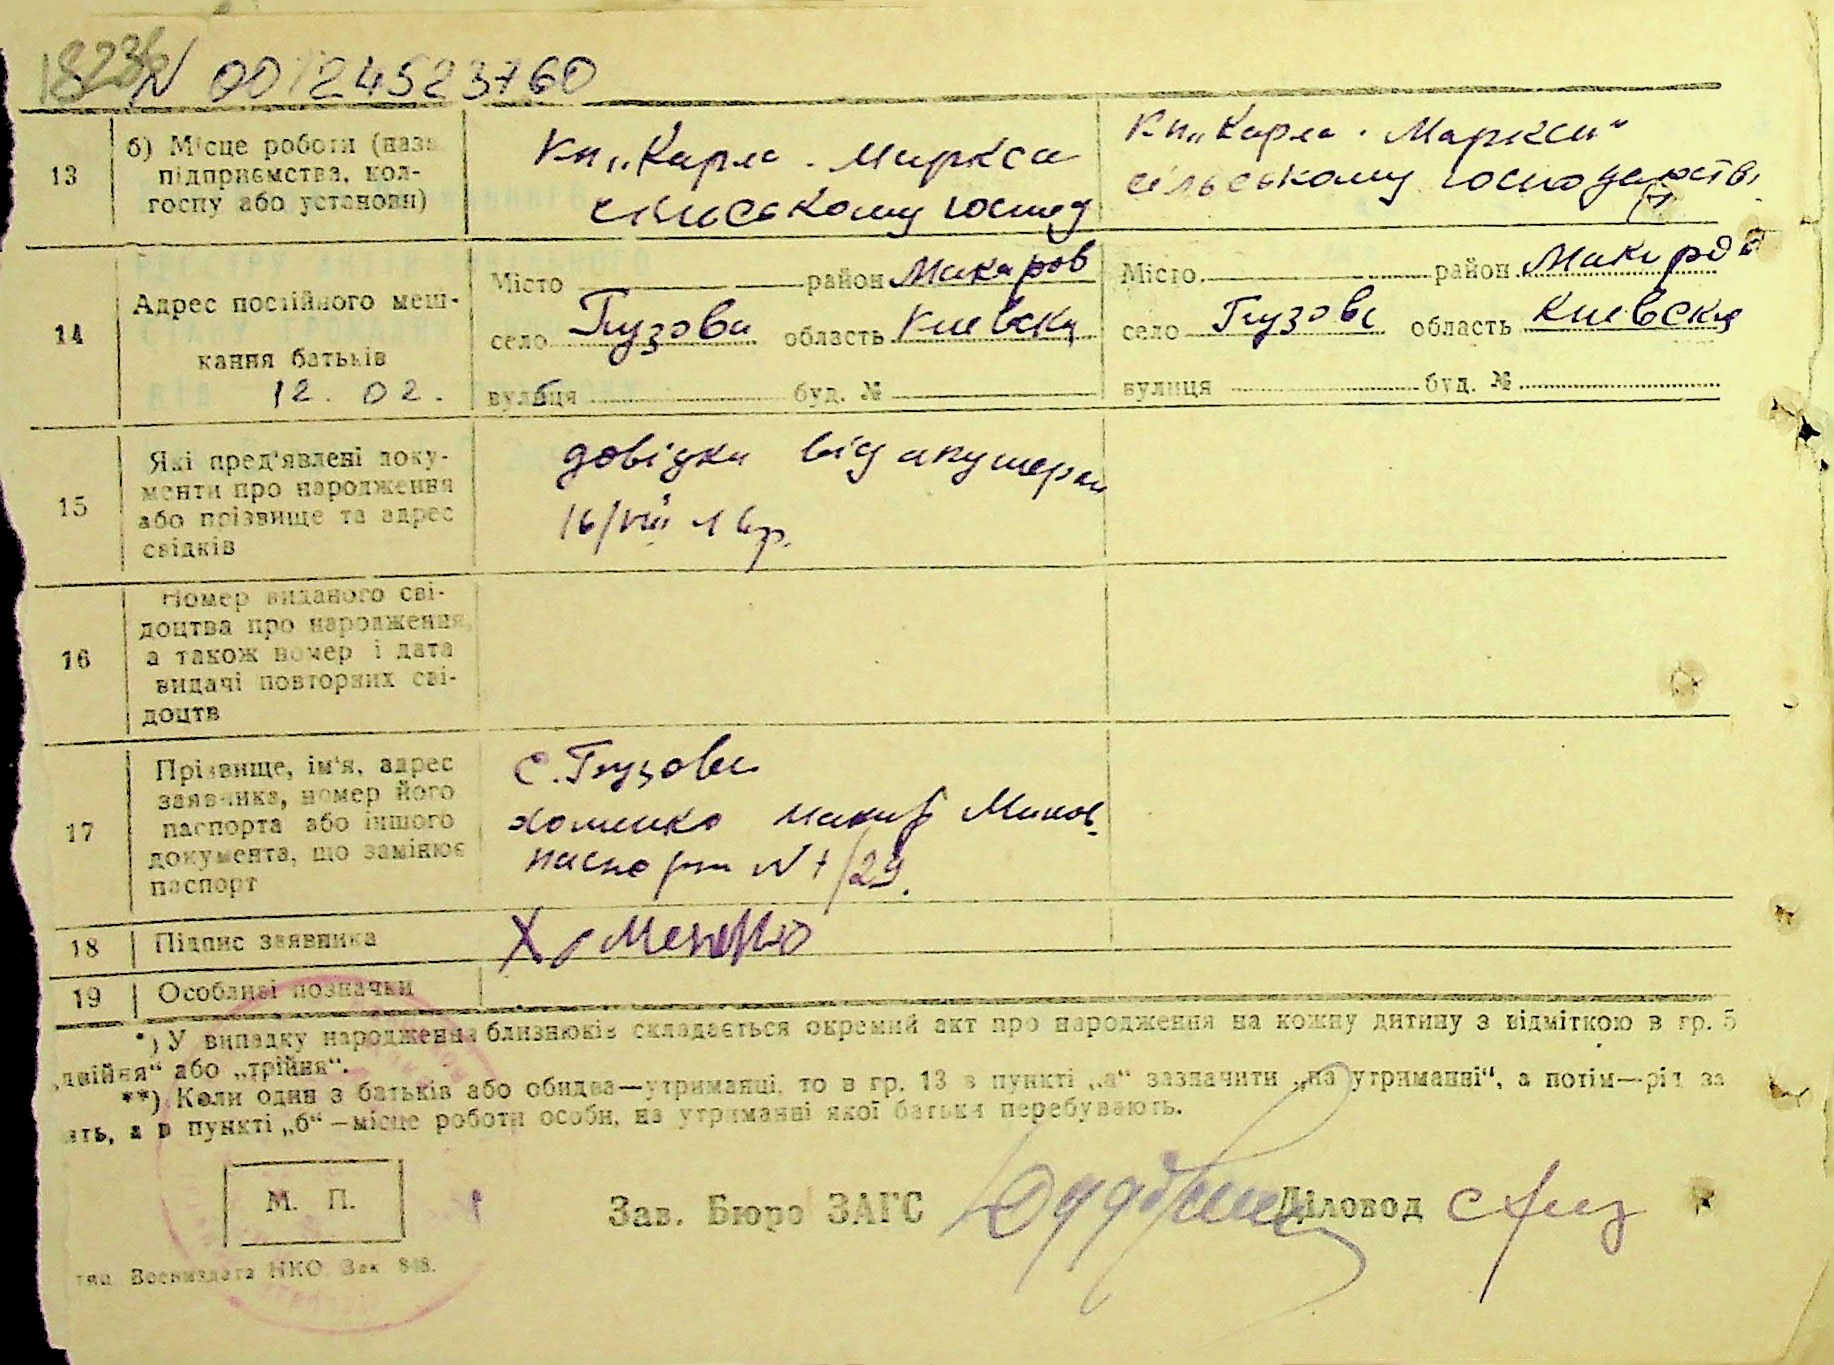 N 00124523760
13
б) Місце роботи (назв
підприємства, кол-
госпу або установи)
Кп „Карла . Маркса
сільському господ
Кп „Карла . Маркса“
сільському господарстві
14
Адрес постійного меш-
кання батьків
12. 02.
Місто район Макаров
село Гузова область Киевска
вулиця буд. №
Місто район Макаров
село Гузова область Киевска
вулиця буд. №
15
Які пред'явлені доку-
менти про народження
або прізвище та адрес
свідків
довідка від акушерки
16/VIII
16
Номер виданого сві-
доцтва про народження,
а також номер і дата
видачі повторних сві-
доцтв
17
Прізвище, ім'я, адрес
заявника, номер його
паспорта або іншого
документа, що замінює
паспорт
с. Гузова
Хоменко Макар
паспорт N
18
Підпис заявника
Хоменко
19
Особливі позначки
*) У випадку народження близнюків складається окремий акт про народження на кожну дитину з відміткою в гр. 5
„двійня“ або „трійня“.
**) Коли один з батьків або обидва—утриманці, то в гр. 13 в пункті „а“ зазначити „на утриманні“, а потім—рід за
ять, а в пункті „б“—місце роботи особи, на утриманні якої батьки перебувають.
М. П.
Зав. Бюро ЗАГС
Діловод
тип Воениздата НКО Зак 848.